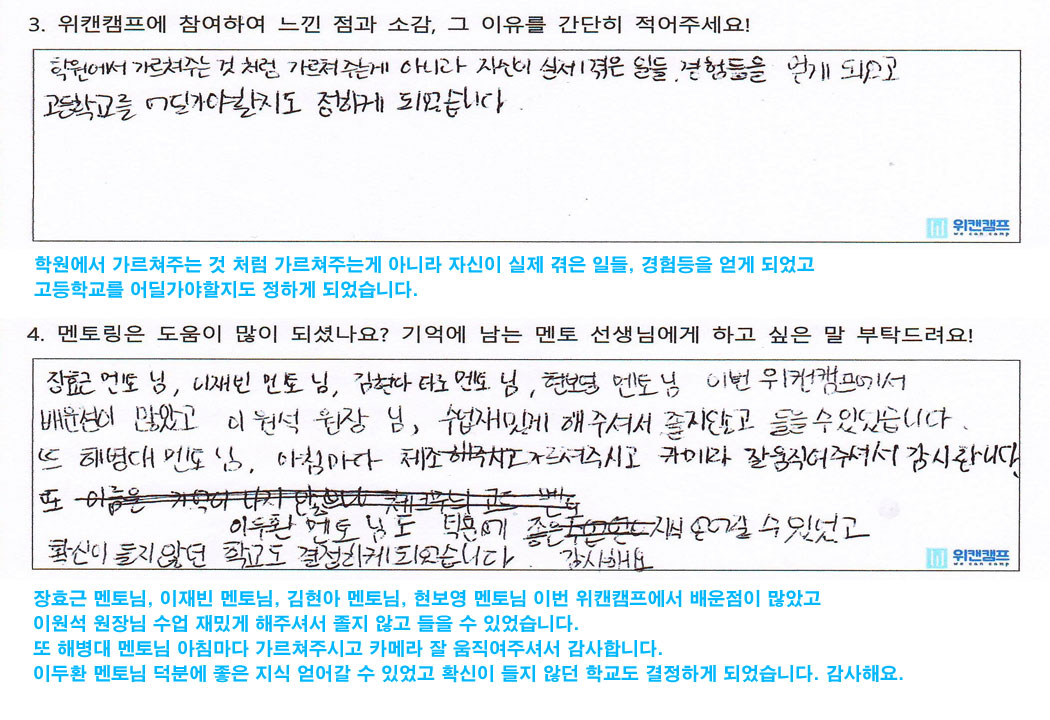 3. 위캔캠프에 참여하여 느낀 점과 소감, 그 이유를 간단히 적어주세요!
학원에서 가르쳐주는 것 처럼 가르쳐주는게 아니라 자신이 실제 겪은 일들, 경험등을 얻게 되었고
고등학교를 어딜가야할지도 정하게 되었습니다.
위캔캠프
we can camp
학원에서 가르쳐주는 것 처럼 가르쳐주는게 아니라 자신이 실제 겪은 일들, 경험등을 얻게 되었고
고등학교를 어딜가야할지도 정하게 되었습니다.
4. 멘토링은 도움이 많이 되셨나요? 기억에 남는 멘토 선생님에게 하고 싶은 말 부탁드려요!
장효근 멘토님, 이재빈 멘토님, 김현아 멘토님, 현보영 멘토님 이번 위캔캠프에서
배운점이 많았고 이원석 원장님, 수업재밌게 해주셔서 졸지않고 들을수있었습니다.
또 해병대 멘토님, 아침마다 체조 가르쳐주시고 카메라 잘움직여주셔서 감사합니다
또
이두환 멘토님도 덕분에 좋은 지식 얻어갈 수 있었고
확신이 들지않던 학교도 결정하게되었습니다. 감사해요
위캔캠프
we can camp
장효근 멘토님, 이재빈 멘토님, 김현아 멘토님, 현보영 멘토님 이번 위캔캠프에서 배운점이 많았고
이원석 원장님 수업 재밌게 해주셔서 졸지 않고 들을 수 있었습니다.
또 해병대 멘토님 아침마다 가르쳐주시고 카메라 잘 움직여주셔서 감사합니다.
이두환 멘토님 덕분에 좋은 지식 얻어갈 수 있었고 확신이 들지 않던 학교도 결정하게 되었습니다. 감사해요.